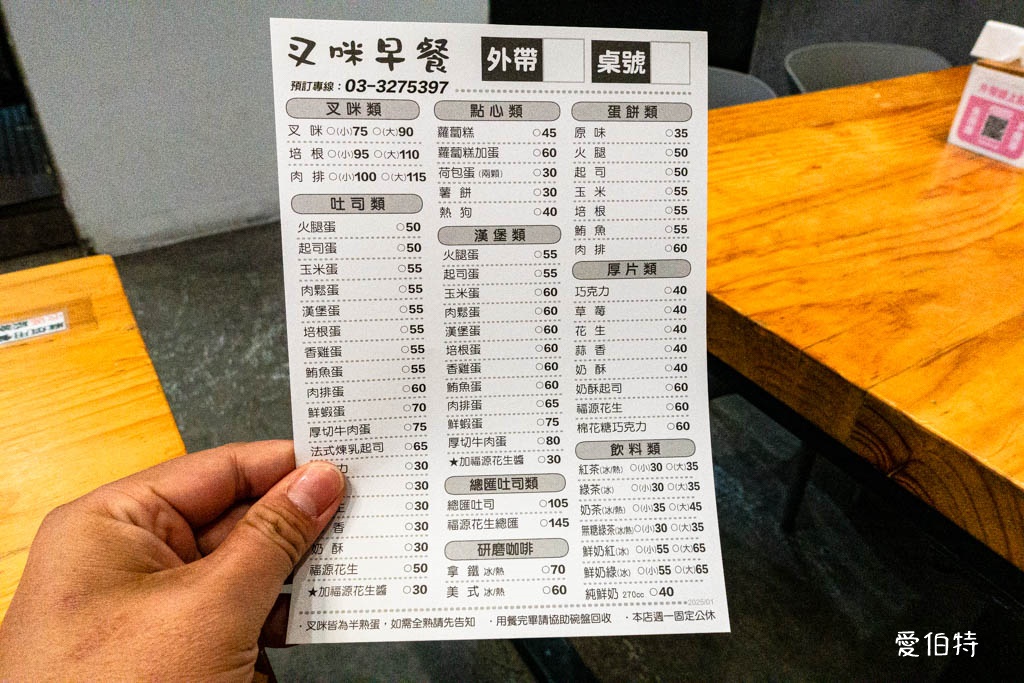 叉咪早餐
外帶
桌號
預訂專線：03-3275397
叉咪類
叉咪 ○(小)75 ○(大)90
培根 ○(小)95 ○(大)110
肉排 ○(小)100 ○(大)115
吐司類
火腿蛋 ○50
起司蛋 ○50
玉米蛋 ○55
肉鬆蛋 ○55
漢堡蛋 ○55
培根蛋 ○55
香雞蛋 ○55
鮪魚蛋 ○55
肉排蛋 ○60
鮮蝦蛋 ○70
厚切牛肉蛋 ○75
法式煉乳起司 ○65
力 ○30
○30
○30
香 ○30
奶酥 ○30
福源花生 ○50
★加福源花生醬 ○30
點心類
蘿蔔糕 ○45
蘿蔔糕加蛋 ○60
荷包蛋(兩顆) ○30
薯餅 ○30
熱狗 ○40
漢堡類
火腿蛋 ○55
起司蛋 ○55
玉米蛋 ○60
肉鬆蛋 ○60
漢堡蛋 ○60
培根蛋 ○60
香雞蛋 ○60
鮪魚蛋 ○60
肉排蛋 ○65
鮮蝦蛋 ○75
厚切牛肉蛋 ○80
★加福源花生醬 ○30
總匯吐司類
總匯吐司 ○105
福源花生總匯 ○145
研磨咖啡
拿鐵 冰/熱 ○70
美式 冰/熱 ○60
蛋餅類
原味 ○35
火腿 ○50
起司 ○50
玉米 ○55
培根 ○55
鮪魚 ○55
肉排 ○60
厚片類
巧克力 ○40
草莓 ○40
花生 ○40
蒜香 ○40
奶酥 ○40
奶酥起司 ○60
福源花生 ○60
棉花糖巧克力 ○60
飲料類
紅茶(冰/熱) ○(小)30 ○(大)35
綠茶(冰) ○(小)30 ○(大)35
奶茶(冰/熱) ○(小)35 ○(大)45
無糖綠茶(冰/熱) ○(小)30 ○(大)35
鮮奶紅(冰) ○(小)55 ○(大)65
鮮奶綠(冰) ○(小)55 ○(大)65
純鮮奶 270cc ○40
2025/01
·叉咪皆為半熟蛋，如需全熟請先告知 ·用餐完畢請協助碗盤回收 ·本店週一固定公休
愛伯特